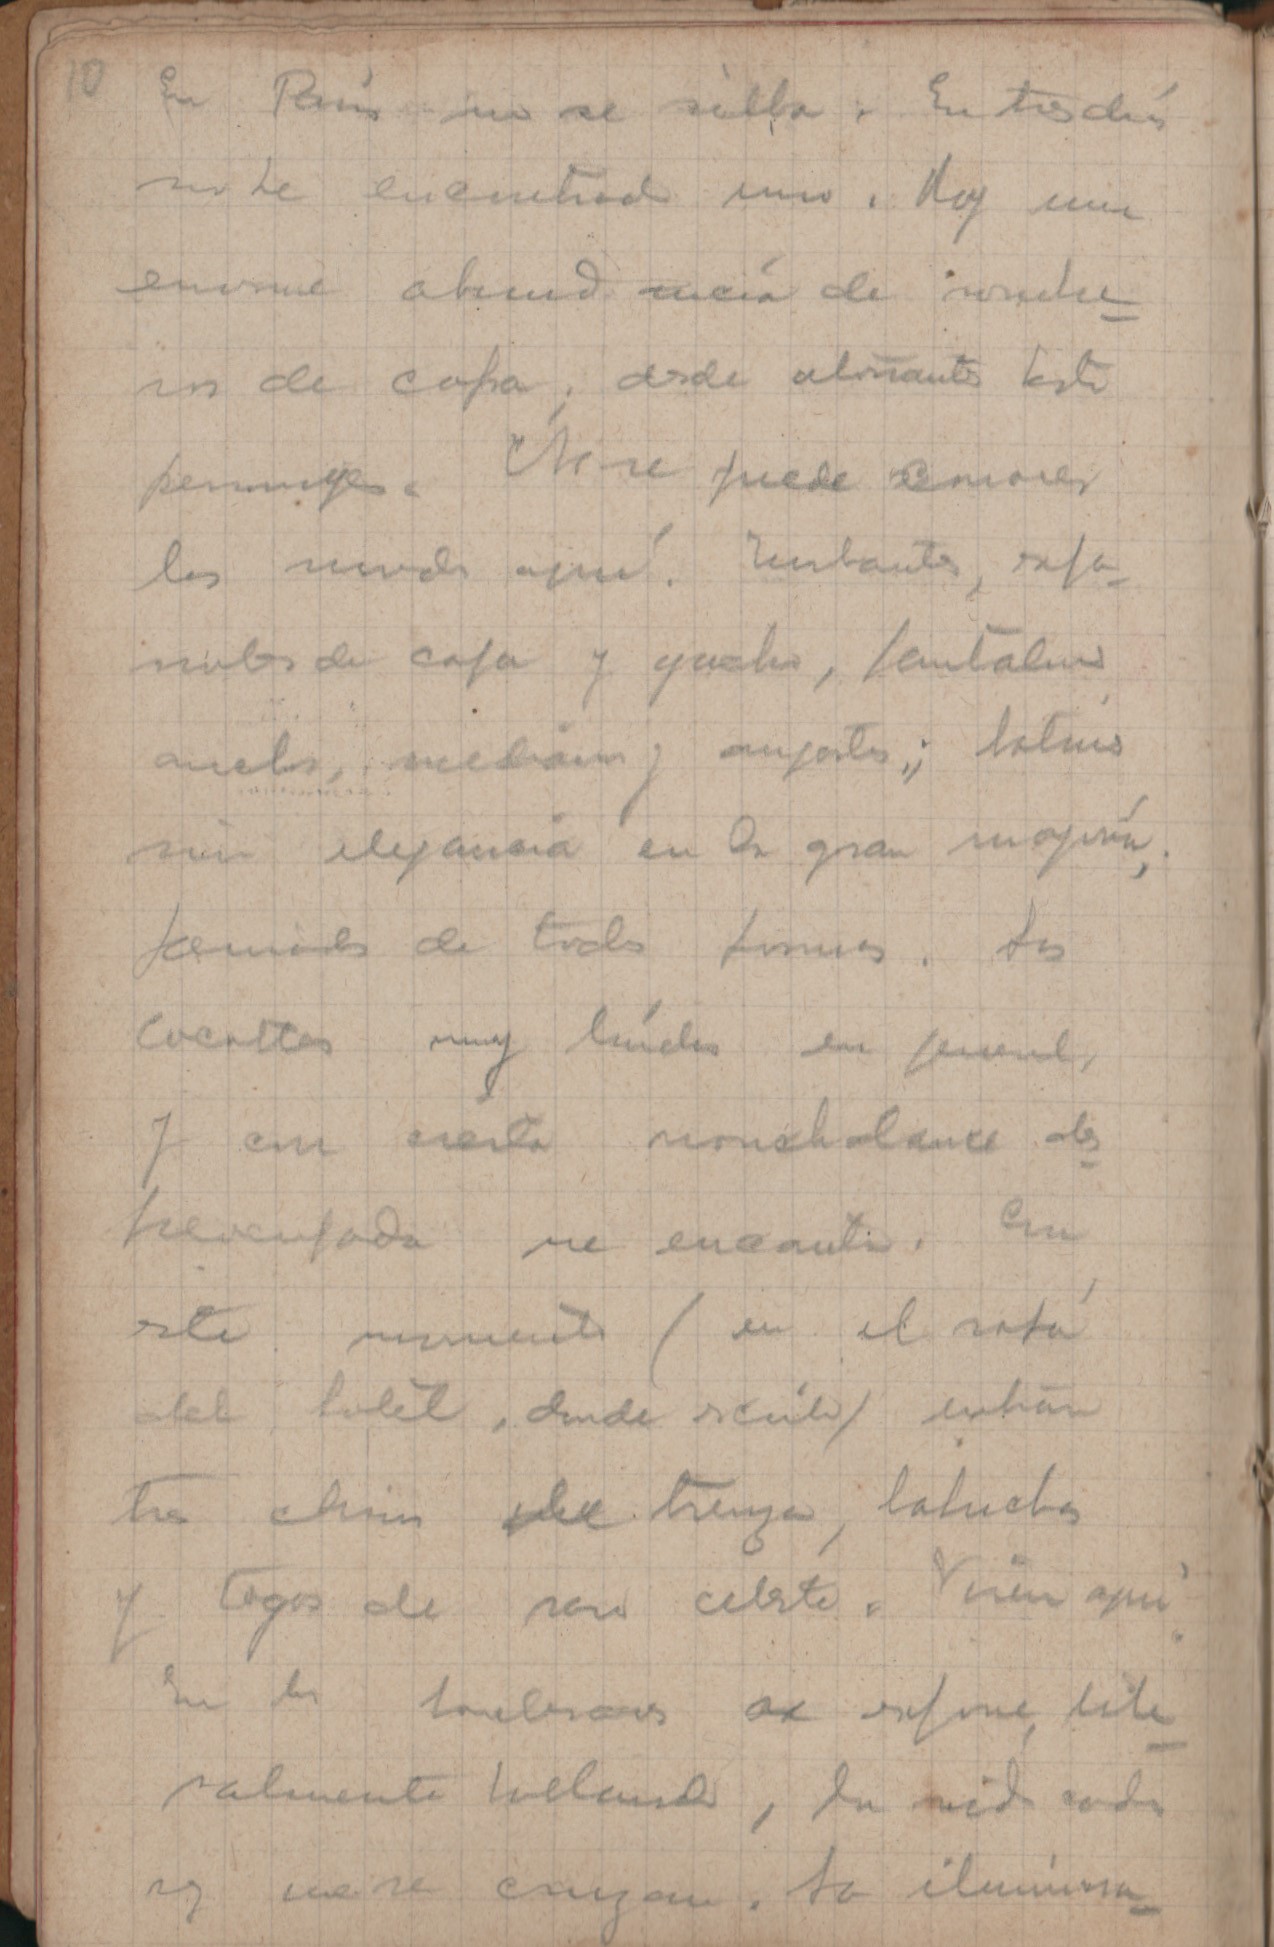 10 En París no se silba. En tres días
no he encontrado uno. Hay una
enorme abundancia de sombre-
ros de copa, desde atorrantes hasta
personajes. No se puede conocer
las modas aquí. Turbantes, espa-
de copa y gacho, pantalones
anchos, medianos y angostos; botines
sin elegancia en la gran mayoría,
peinados de todas formas. Las
cocottes muy lindas en general,
y con cierta nonchalance des
preocupada que encanta. En
este momento (en el sofá
del hotel, donde escribo) entran
tres chinos de trenza, babuchas
y togas de raso celeste. Viven aquí.
En los boulevares se expone, lite
ralmente hablando, la vida cada
vez que se cruzan. La ilumina-